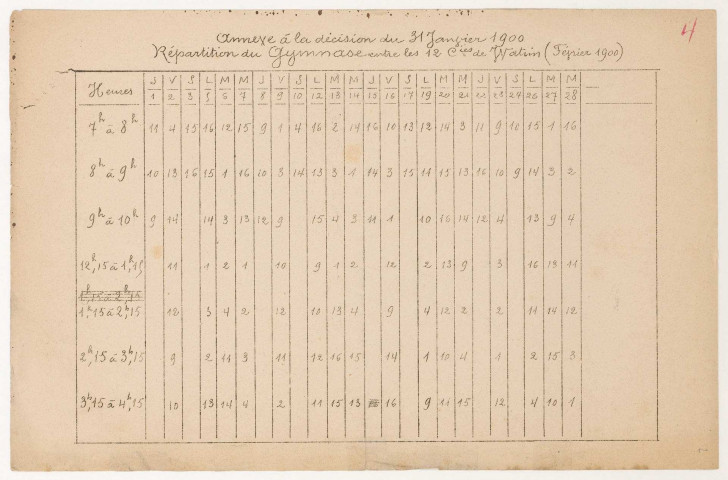 4
Annexe à la décision du 31 Janvier 1900
Répartition du Gymnase entre les 12 Cies de Watrin (Février 1900)
Heures J V S L M M J V S L M M J V S L M M J V S L M M
1 2 3 5 6 7 8 9 10 12 13 14 15 16 17 19 20 21 22 23 24 26 27 28
7h à 8h 11 4 15 16 12 15 9 1 4 16 2 14 16 10 13 12 14 3 11 9 10 15 1 16
8h à 9h 10 13 16 15 1 16 10 3 14 13 3 1 14 3 15 11 15 13 16 10 9 14 3 2
9h à 10h 9 14 14 3 13 12 9 15 4 3 11 1 10 16 14 12 4 13 9 4
12h,15 à 1h,15 11 1 2 1 10 9 1 2 12 2 13 9 3 16 13 11
1h,15 à 2h,15
1h,15 à 2h,15 12 3 4 2 12 10 13 4 9 4 12 2 2 11 14 12
2h,15 à 3h,15 9 2 11 3 11 12 16 15 14 1 10 4 1 2 15 3
3h,15 à 4h,15 10 13 14 4 2 11 15 13 16 9 11 15 12 4 10 1